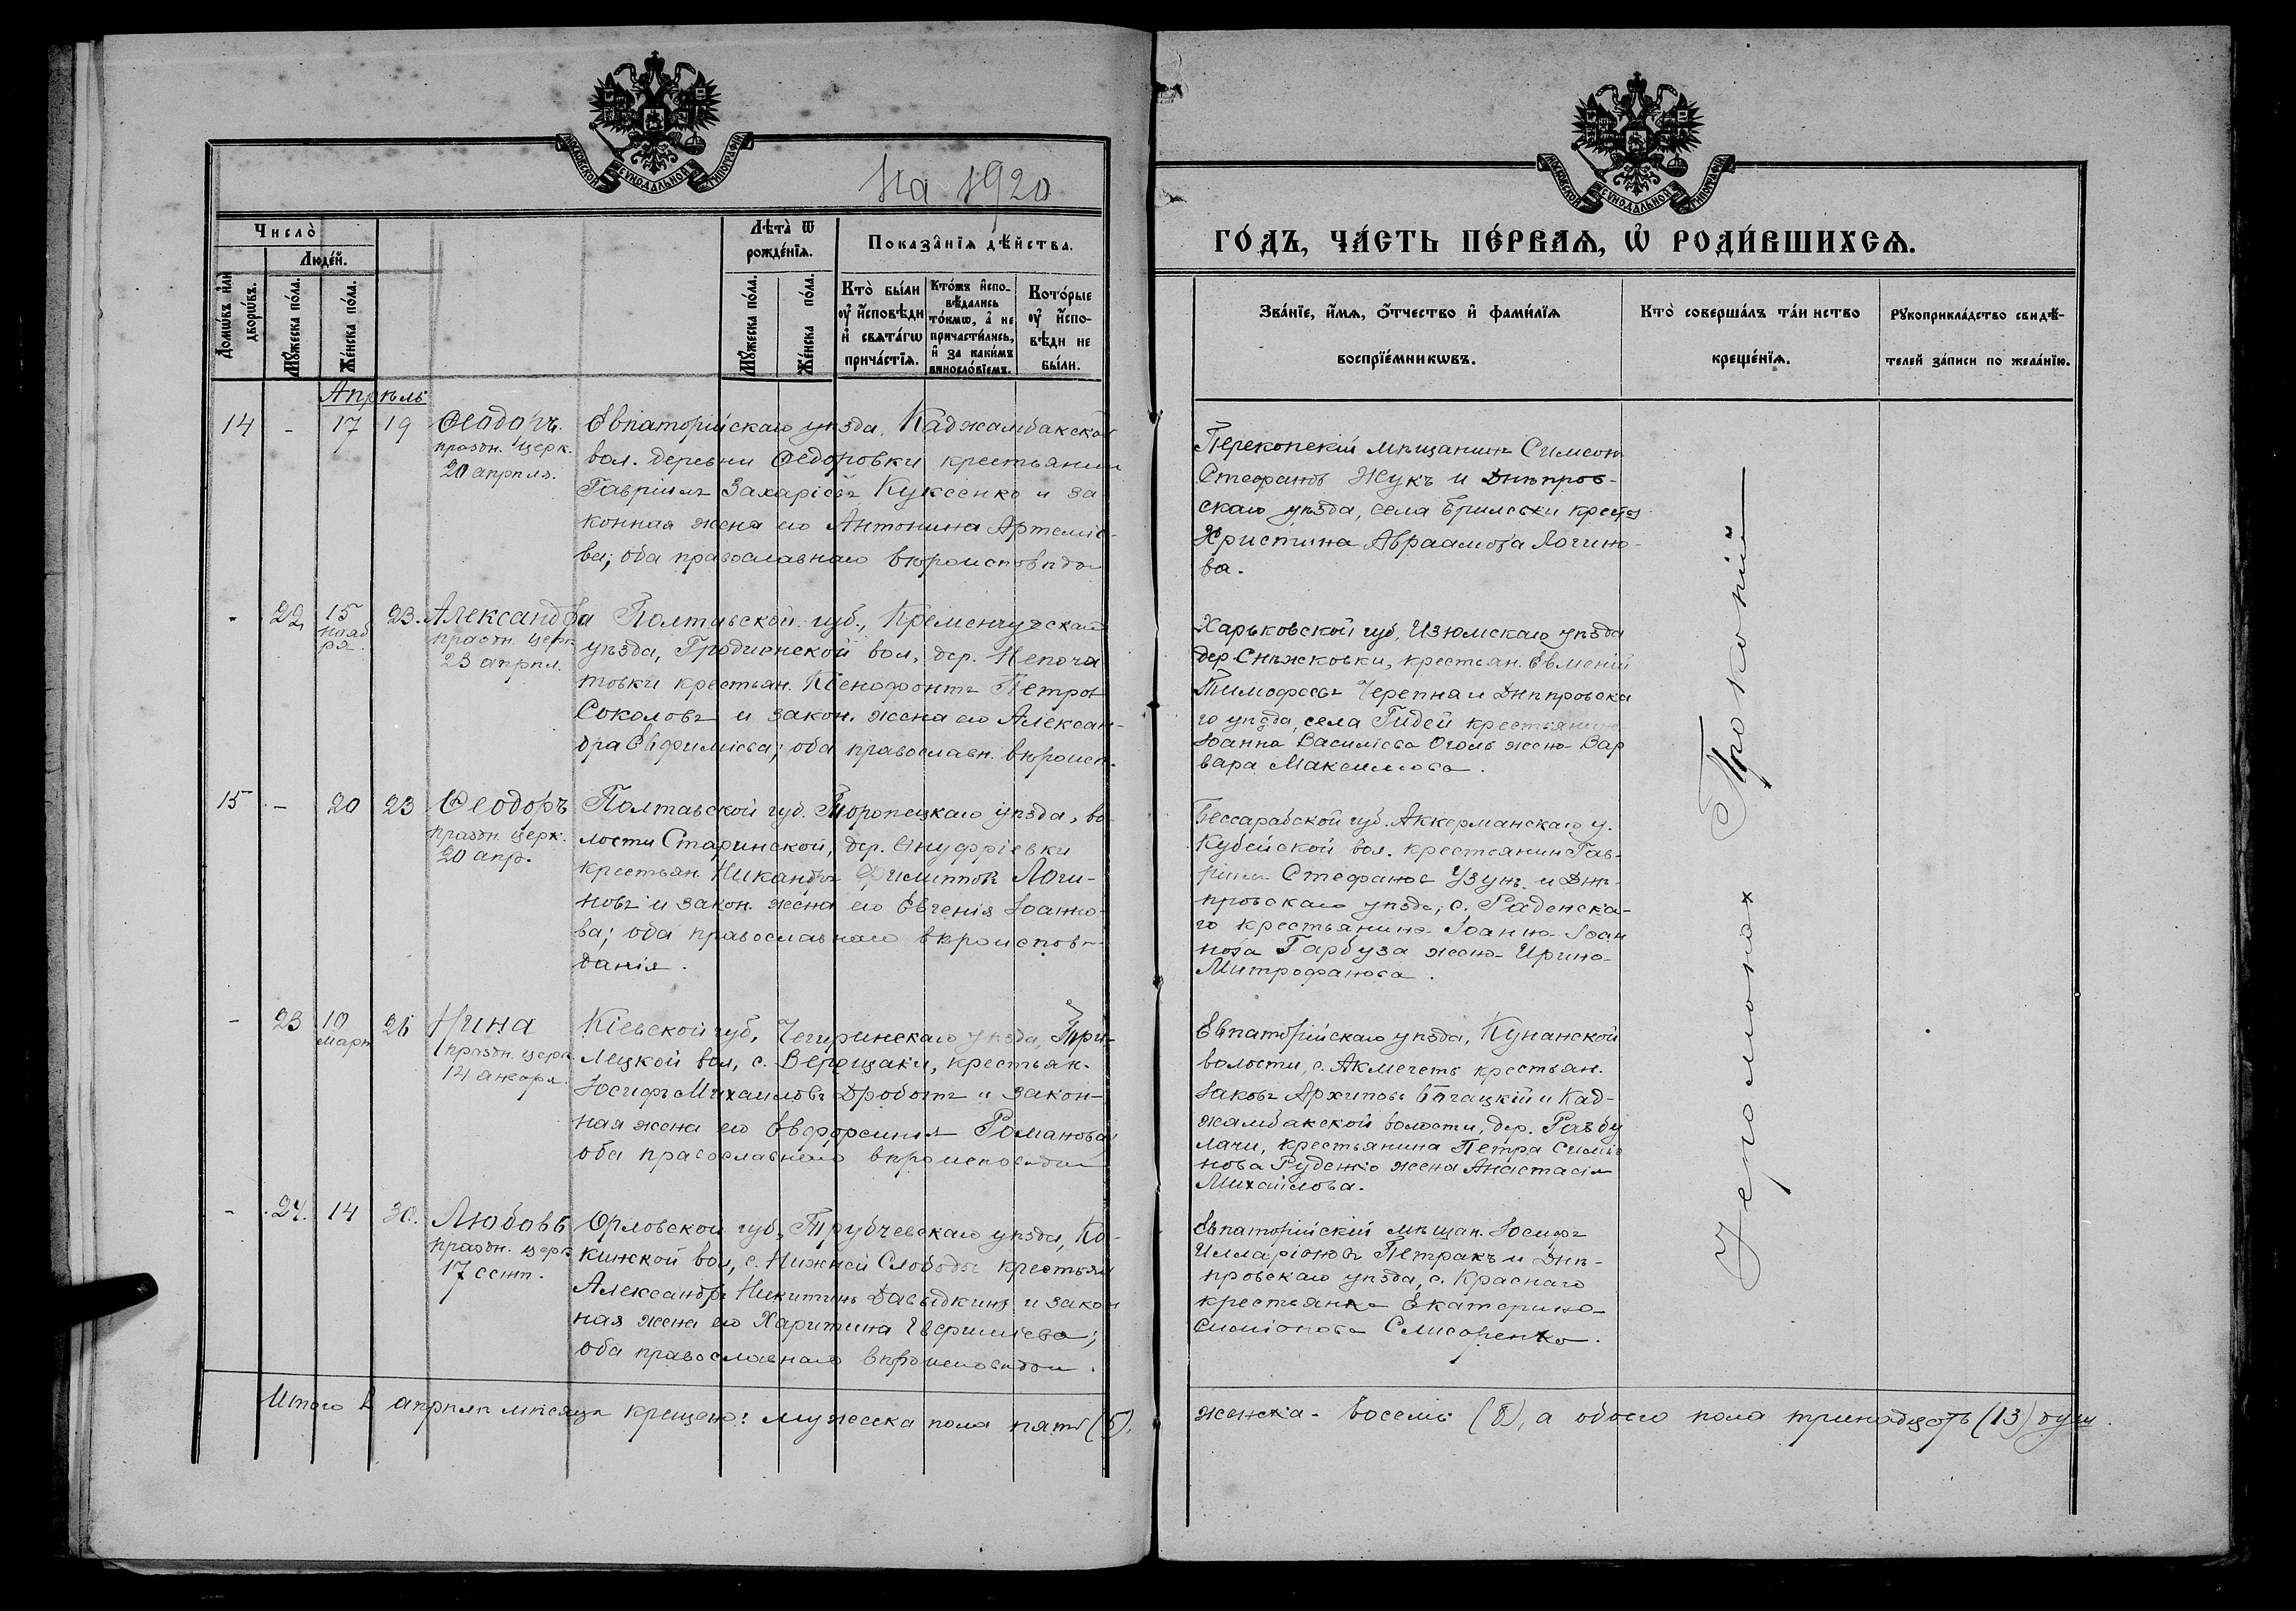 МОСКОВСКОЙ СѴНОДАЛЬНОЙ ТИПОГРАФІИ
На 1920
Число̀
Люде́й.
Домѡ́въ и҆лѝ дворѡ́въ.
Мꙋ́жеска по́ла.
Же́нска по́ла.
Лѣ́та ѿ рожде́нїѧ.
Мꙋ́жеска по́ла.
Же́нска по́ла.
Показа̑нїѧ дѣ́йства.
Кто̀ бы́ли ᲂу҆ и҆́сповѣди и҆ свѧта́гѡ прича́стїѧ.
Кто́жъ и҆спо-
вѣ́дались
то́кмѡ, а҆ не
причасти́лись,
и҆ за каки́мъ
виносло́вїемъ.
Кото́рые
ᲂу҆ и҆спо-
вѣди не
бы́ли.
Апрѣль
14 - 17 19 Ѳеодоръ.
праздн. церк.
20 апрѣля.
Евпаторійскаго уѣзда, Каджамбакской
вол. деревни Ѳедоровки крестьянин
Гавріилъ Захаріевъ Куксенко и за
конная жена его Антонина Артеміе-
ва; оба православнаго вѣроисповѣдан
- 22 15
нояб
ря. 23. Александра
праздн. церк.
23 апрѣл.
Полтавской губ., Кременчугскаго
уѣзда, вол., дер. Непоча
товки крестьян. Ксенофонтъ Петров
Соколовъ и закон. жена его Алексан-
дра Евфиміева; оба православн. вѣроисп.
15 - 20 23 Ѳеодоръ
праздн. церк.
20 апр.
Полтавской губ. уѣзда, во-
лости Старинской, дер. Онуфріевки
крестьян. Никандръ Филипповъ Логи-
новъ и закон. жена его Евгенія Іоанно-
ва; оба православнаго вѣроисповѣ-
данія.
- 23 10
март 26 Нина
праздн. церк.
14 января.
Кіевской губ, Чегиринскаго уѣзда,
вол, с. Верещаки, крестьян.
Іосифъ Михаиловъ Дроботъ и закон-
ная жена его Евфросинія Романова;
оба православнаго вѣроисповѣдан
- 24. 14 30. Любовь
праздн. церк
17 сент.
Орловской губ, Трубчевскаго уѣзда, Ко-
кинской вол, с. Нижней Слободы крестьян
Александръ Никитинъ Давыдкинъ и закон
ная жена его Харитина Евфиміева;
оба православнаго вѣроисповѣдан.
Итого в апрѣлѣ мѣсяцѣ крещено: мужеска пола пять (5),
МОСКОВСКОЙ СѴНОДАЛЬНОЙ ТИПОГРАФІИ
ГО́ДЪ, ЧА́СТЬ ПЕ́РВАѦ, Ѡ҆ РОДИ́ВШИХСѦ.
Зва́нїе, и҆́мѧ, ѻ҆́тчество и҆ фами́лїѧ
воспрїе́мникѡвъ.
Кто̀ соверша́лъ та́инство
креще́нїѧ.
Рꙋкоприкла́дство свидѣ́-
телей за́писи по жела́нїю.
Перекопскій мѣщанинъ Симеонъ
Стефановъ Жукъ и Днѣпров-
скаго уѣзда, села Брилевки крест.
Христина Авраамова Логино-
ва.
Харьковской губ, Изюмскаго уѣзда
дер. Снѣжковки, крестьян. Евменій
Тимофеевъ Черепна и Днѣпровска
го уѣзда, села крестьянина
Іоанна Василіева Оголь жена Вар
вара Максимова.
Бессарабской губ. Аккерманскаго у.
Кубейской вол. крестьянин Гав-
ріилъ Стефановъ Узунъ и Днѣ-
провскаго уѣзда, с. Раденска-
го крестьянина Іоанна Іоан
нова Гарбуза жена Ирина
Митрофанова.
Евпаторійскаго уѣзда, Кунанской
волости, с. Акмечеть крестьян.
Іаковъ Архиповъ Богацкій и Кад-
жамбакской волости, дер.
крестьянина Петра Симео
нова Руденко жена Анастасія
Михайлова.
Евпаторійскій мѣщан. Іосифъ
Илларіоновъ Петракъ и Днѣ-
провскаго уѣзда, с. Краснаго
крестьянка Екатерина
Симіонова
Іеромонах Прокопій
женска - восемь (8), а обоего пола тринадцать (13) душ.